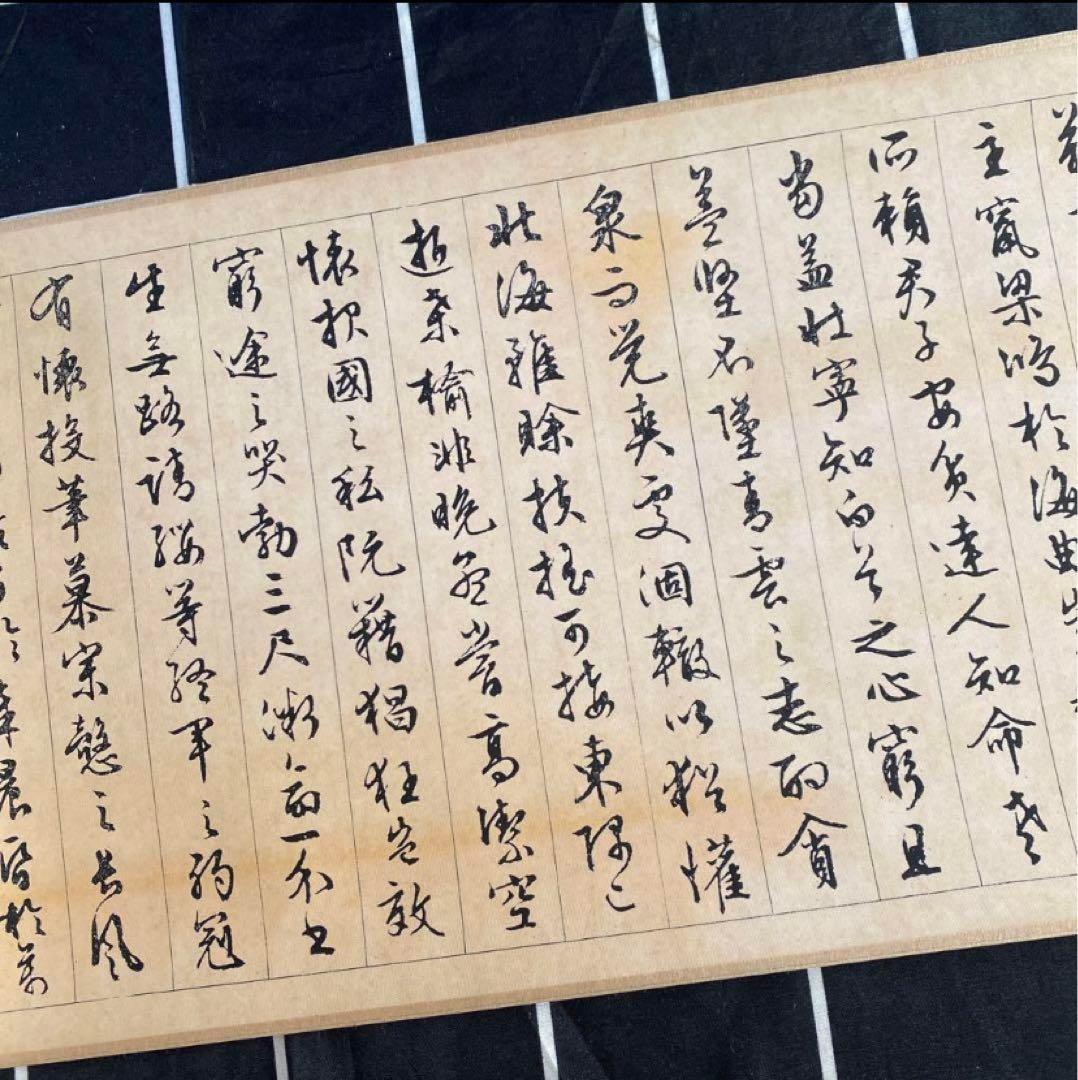 主竄梁鴻於海曲豈
所賴君子安貧達人知命老
當益壯寧知白首之心窮且
益堅不墜青雲之志酌貪
泉而覺爽處涸轍以猶懽
北海雖賒扶搖可接東隅已
逝桑榆非晚孟嘗高潔空
懷報國之私阮籍猖狂豈效
窮途之哭勃三尺微命一介書
生無路請纓等終軍之弱冠
有懷投筆慕宗慤之長風
奉晨昏於萬